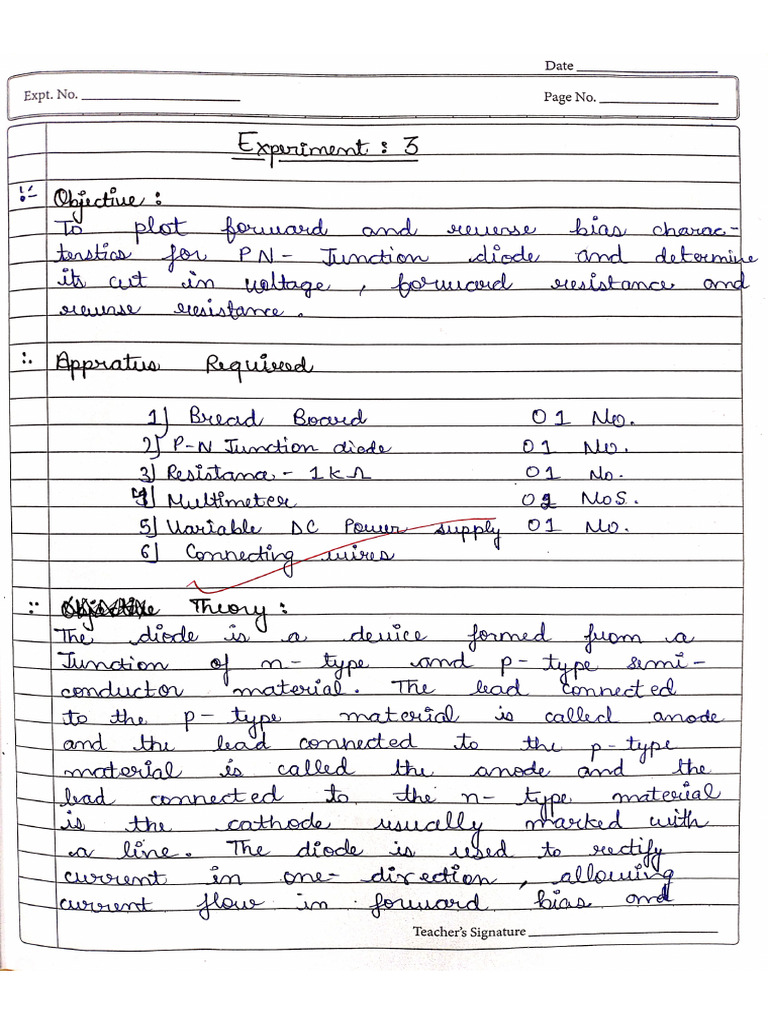 Date
Expt. No.
Page No.
Experiment : 3
Objective :
To plot forward and reverse bias charac-
terstics for PN - Junction diode and determine
its cut in voltage , forward resistance and
reverse resistance .
Appratus Required
1) Bread Board 01 No.
2) P-N Junction diode 01 No.
3) Resistance - 1 kΩ 01 No.
4) Multimeter 02 Nos.
5) Variable DC Power supply 01 No.
6) Connecting wires
Theory :
The diode is a device formed from a
Junction of n - type and p - type semi -
conductor material . The lead connected
to the p - type material is called anode
and the lead connected to the p - type
material is called the anode and the
lead connected to the n - type material
is the cathode usually marked with
a line . The diode is used to rectify
current in one - direction , allowing
current flow in forward bias and
Teacher's Signature